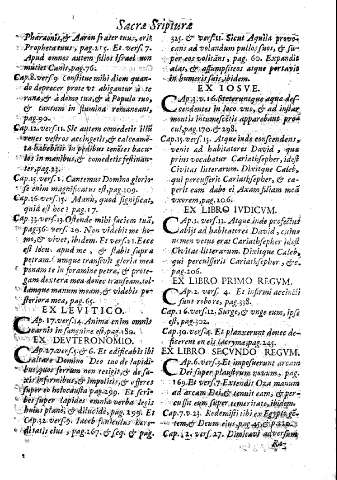 Sacræ Scripturæ
Pharaonis, & Aaron frater tuus, erit
Propheta tuus, pag. 215. Et vers. 7.
Apud omnes autem filios Israel non
mutiet Canis, pag. 76.
Cap. 8. vers. 9 Constitue mihi diem quan-
do deprecer prote vt abigantur à te
ranæ, & à domo tua, & à Populo tuo,
& tantum in flumine remaneant,
pag. 90.
Cap. 12. vers. 11. Sic autem comedetis illũ
renes vestros accingetis, & calceamẽ-
ta habebitis in pedibus tenẽtes bacu-
los in manibus, & comedetis festinan-
ter, pag. 23.
Cap. 15. vers. 1. Cantemus Domino glorio-
se enim magnificatus est, pag. 109.
Cap. 16. vers. 15. Manù, quod significat,
quid est hoc? pag. 17.
Cap. 33. vers. 13. Ostende mihi faciem tuã,
pag. 56 vers. 20. Non videbit me ho-
mo, & vivet, ibidem. Et vers. 21. Ecce
est locus apud me, & stabis supra
petram cumque transivit gloria mea
ponam te in foramine petræ, & prote-
gam dextera mea donec transeam, tol-
lamque manum meam, & videbis po-
steriora mea, pag. 65.
EX LEVITICO.
Cap. 17. vers. 14. Anima enim omnis
carnis in sanguine est, pag. 182.
EX DEVTERONOMIO.
Cap. 27. vers. 5. & 6. Et ædificabis ibi
altare Domino Deo tuo de lapidi-
bus, quos ferrum non tetigit, & de sa-
xis informibus, & impolitis, & offeres
super eo holocausta pag. 299. Et scri-
bes super lapides omnia verba legis
huius planè, & dilucidè, pag. 299. Et
Cap. 32. vers. 9. Iacob funiculus hære-
ditatis eius, pag. 267. & seq. & pag.
325. & vers. 11. Sicut Aquila provo-
cans ad volandum pullos suos, & su-
per eos volitans, pag. 60. Expandit
alas, & assumpsit eos atque portavit
in humeris suis, ibidem.
EX IOSVE.
Cap. 3. v. 16. Steterunt que aquæ des-
cendentes in loco vno, & ad instar
montis intumescentis apparebant pro-
cul, pag. 170. & 298.
Cap. 15. vers. 15. Atque inde conscendens,
venit ad habitatores David, quæ
prius vocabatur Cariathsepher, id est
Civitas literarum. Dixitque Caleb,
qui percusserit Cariathsepher, & ce-
perit eam dabo ei Axam filiam meã
vxorem, pag. 206.
EX LIBRO IVDICVM.
Cap. 1. vers. 11. Atque inde profectus
abijt ad habitatores David, cuius
nomen vetus erat Cariathsepher id est
Civitas literarum. Dixitque Caleb,
qui percusserit Cariathsepher, &c.
pag. 206.
EX LIBRO PRIMO REGVM.
Cap. 2. vers. 4. Et infirmi accincti
sunt robore, pag. 338.
Cap. 16. vers. 12. Surge, & vnge eum, ipse
est, pag. 302.
Cap. 30. vers. 4. Et planxerunt donec de-
ficerent en eis lacrymæ, pag. 245.
EX LIBRO SECVNDO REGVM.
Cap. 6. vers. 3. Et imposuerunt arcam
Dei super plaustrum novum, pag.
169. Et vers. 7. Extendit Oza manum
ad arcam Dei, & tenuit eam, & per-
cussit eum super temeritate, ibidem.
Cap. 7. v. 23. Redemisti tibi ex Egypto gẽ-
tem, & Deum eius, pag.
Cap. 12. vers. 27. Dimicavi adversum